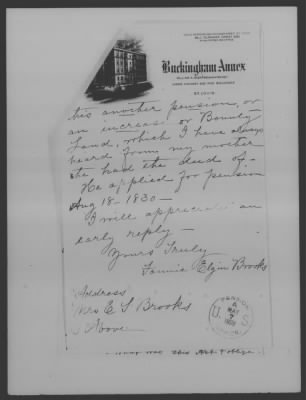 Buckingham Annex
ST. LOUIS.
his another pension, or
an increase or Bounty
Land, which I have always
heard from my mother
she had the deed of -
He applied for pension
Aug 18 - 1830 -
I will appreciate an
early reply -
Yours Truly
Fannie Elgin Brooks
Address
Mrs E S Brooks
Above
U. S.
MAY
7